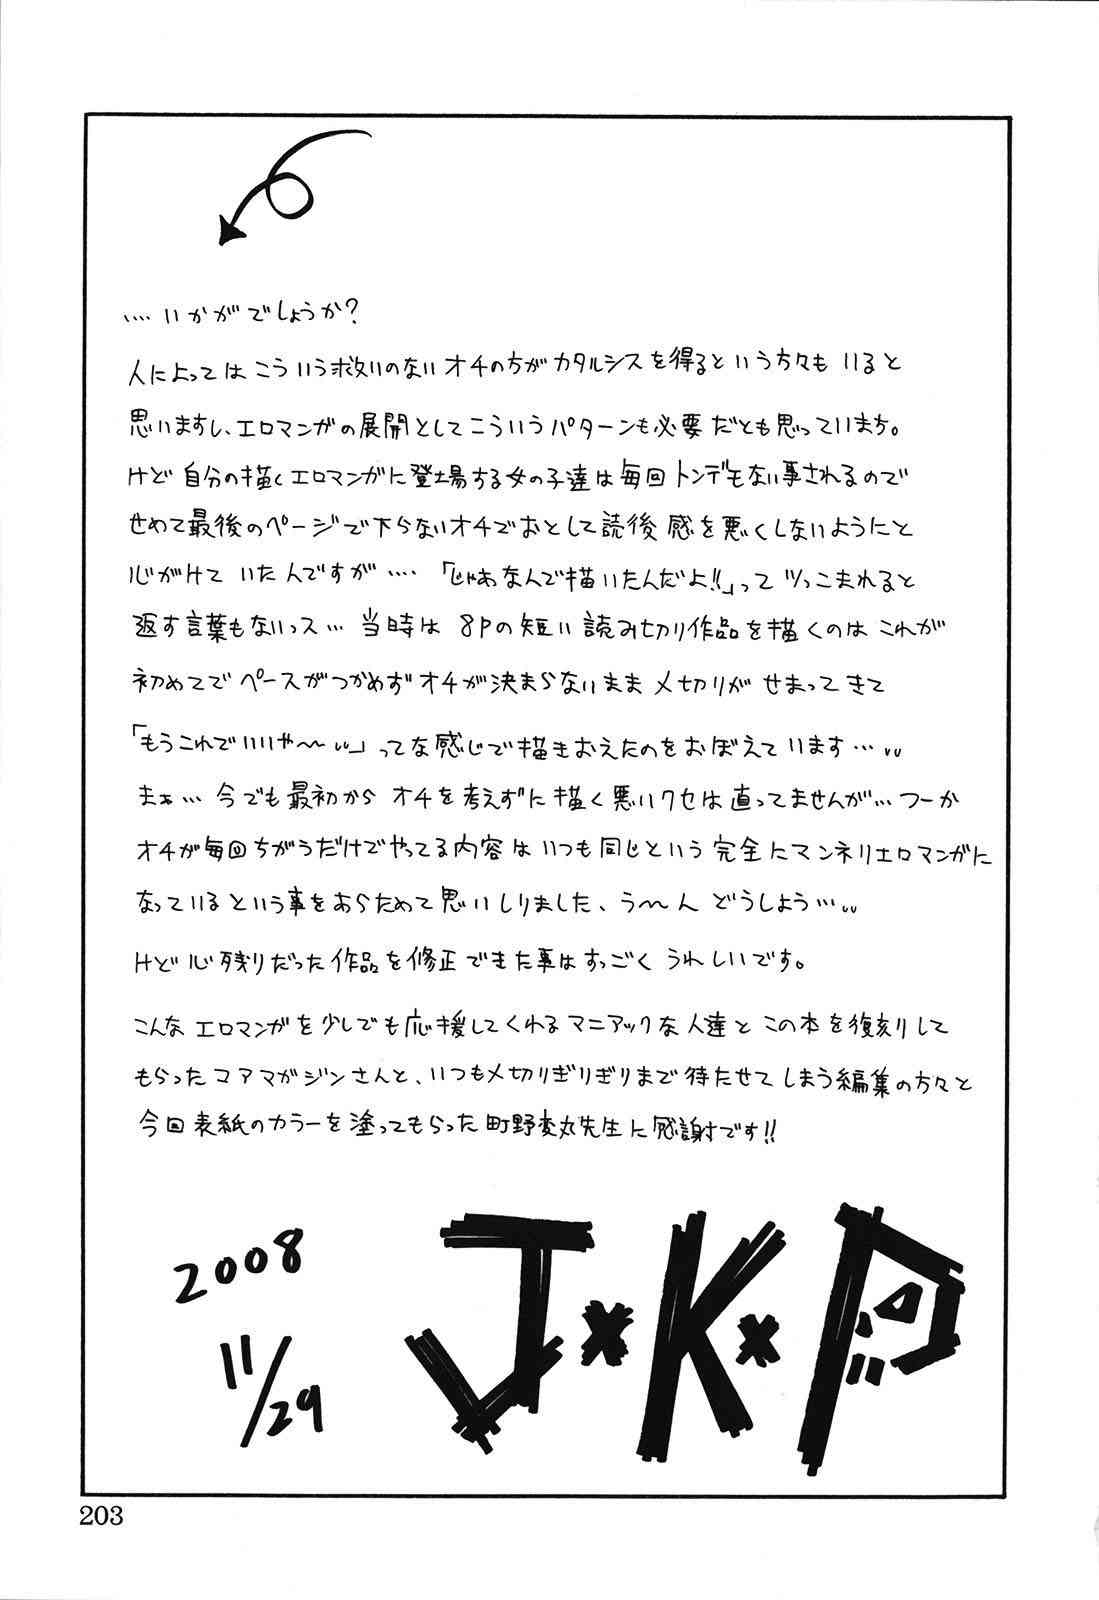 ‥‥いかがでしょうか?
人によってはこういう救いのないオチの方がカタルシスを得るという方々もいると
思いますし、エロマンガの展開としてこういうパターンも必要だとも思っています。
けど自分の描くエロマンガに登場する女の子達は毎回トンデもない事されるので
せめて最後のページで下らないオチでおとして読後感を悪くしないようにと
心がけていたんですが‥‥「じゃあなんで描いたんだよ!!」ってツっこまれると
返す言葉もないっス…当時は8Pの短い読み切り作品を描くのはこれが
初めてでペースがつかめずオチが決まらないまま〆切りがせまってきて
「もうこれでいいや〜」ってな感じで描きおえたのをおぼえています…
まぁ…今でも最初からオチを考えずに描く悪いクセは直ってませんが…つーか
オチが毎回ちがうだけでやってる内容はいつも同じという完全にマンネリエロマンガに
なっているという事をあらためて思いしりました、う〜んどうしよう…
けど心残りだった作品を修正できた事はすっごくうれしいです。
こんなエロマンガを少しでも応援してくれるマニアックな人達とこの本を復刻して
もらったコアマガジンさんと、いつも〆切りぎりぎりまで待たせてしまう編集の方々と
今回表紙のカラーを塗ってもらった町野変丸先生に感謝です!!
2008
11/29
J×K×P
203